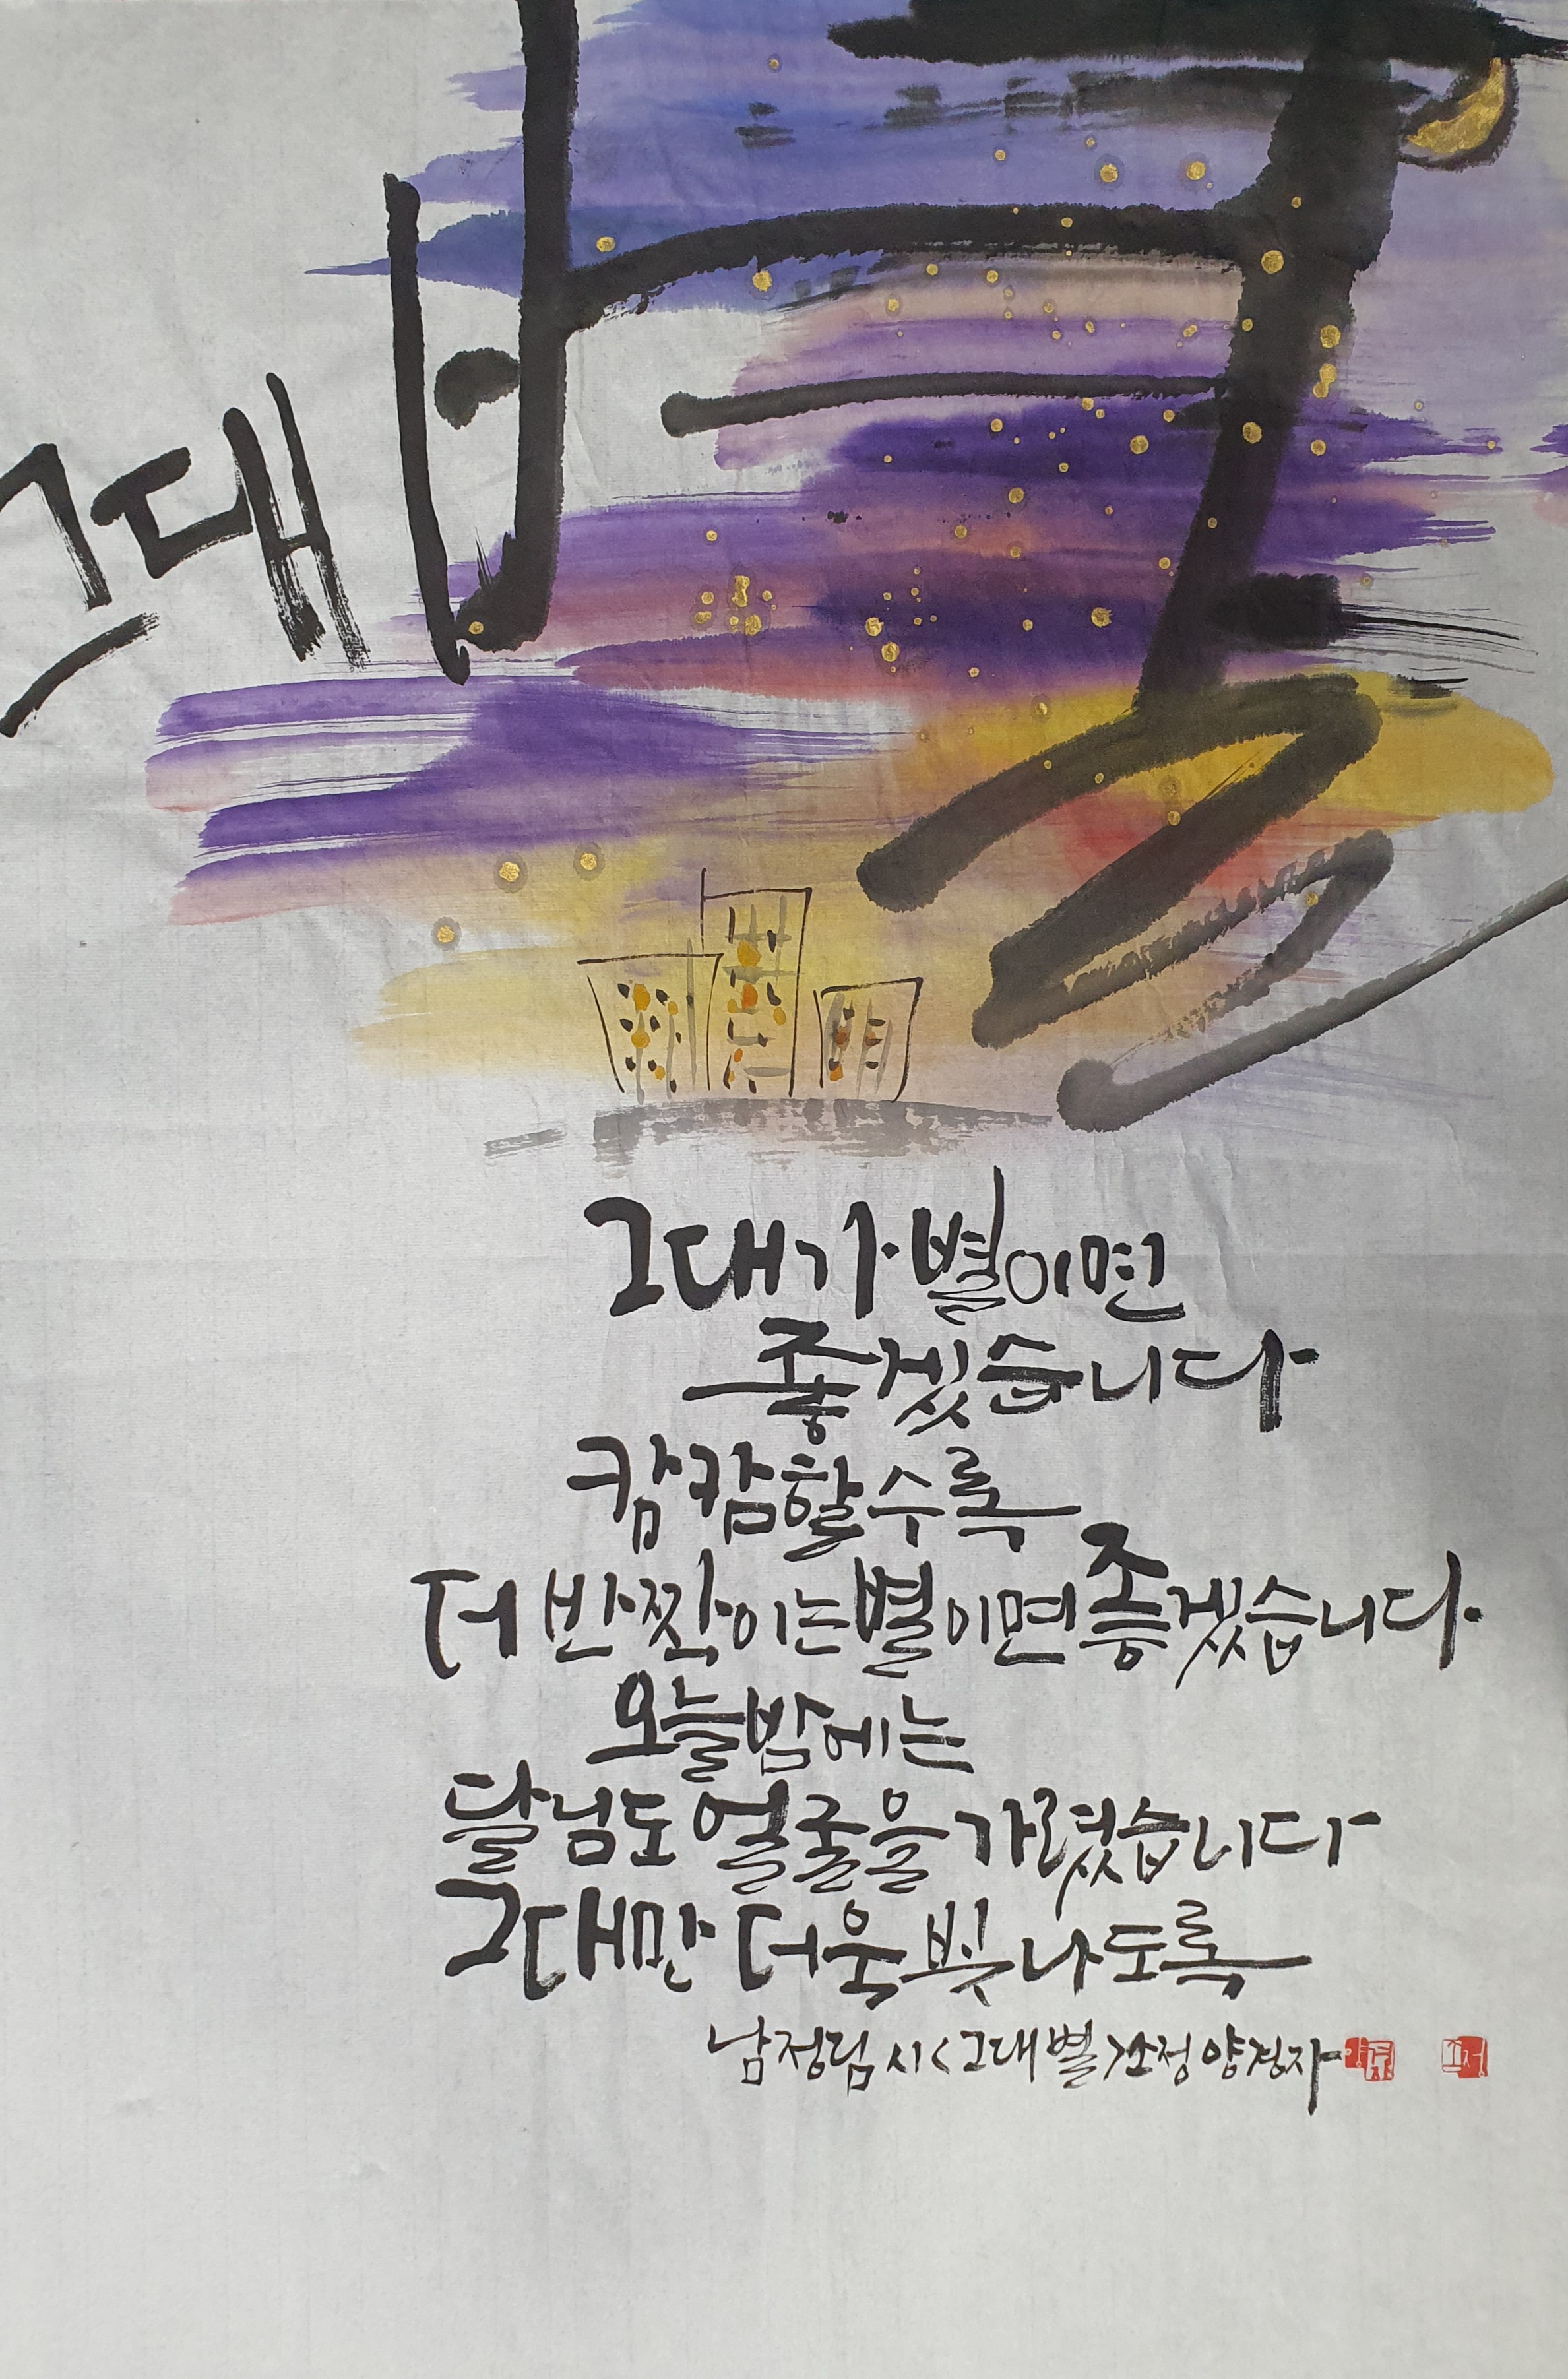 그대 별
그대가 별이면
좋겠습니다
캄캄할수록
더 반짝이는 별이면 좋겠습니다
오늘밤에는
달님도 얼굴을 가렸습니다
그대만 더욱 빛나도록
남정림 시 <그대 별> 소정 양경자